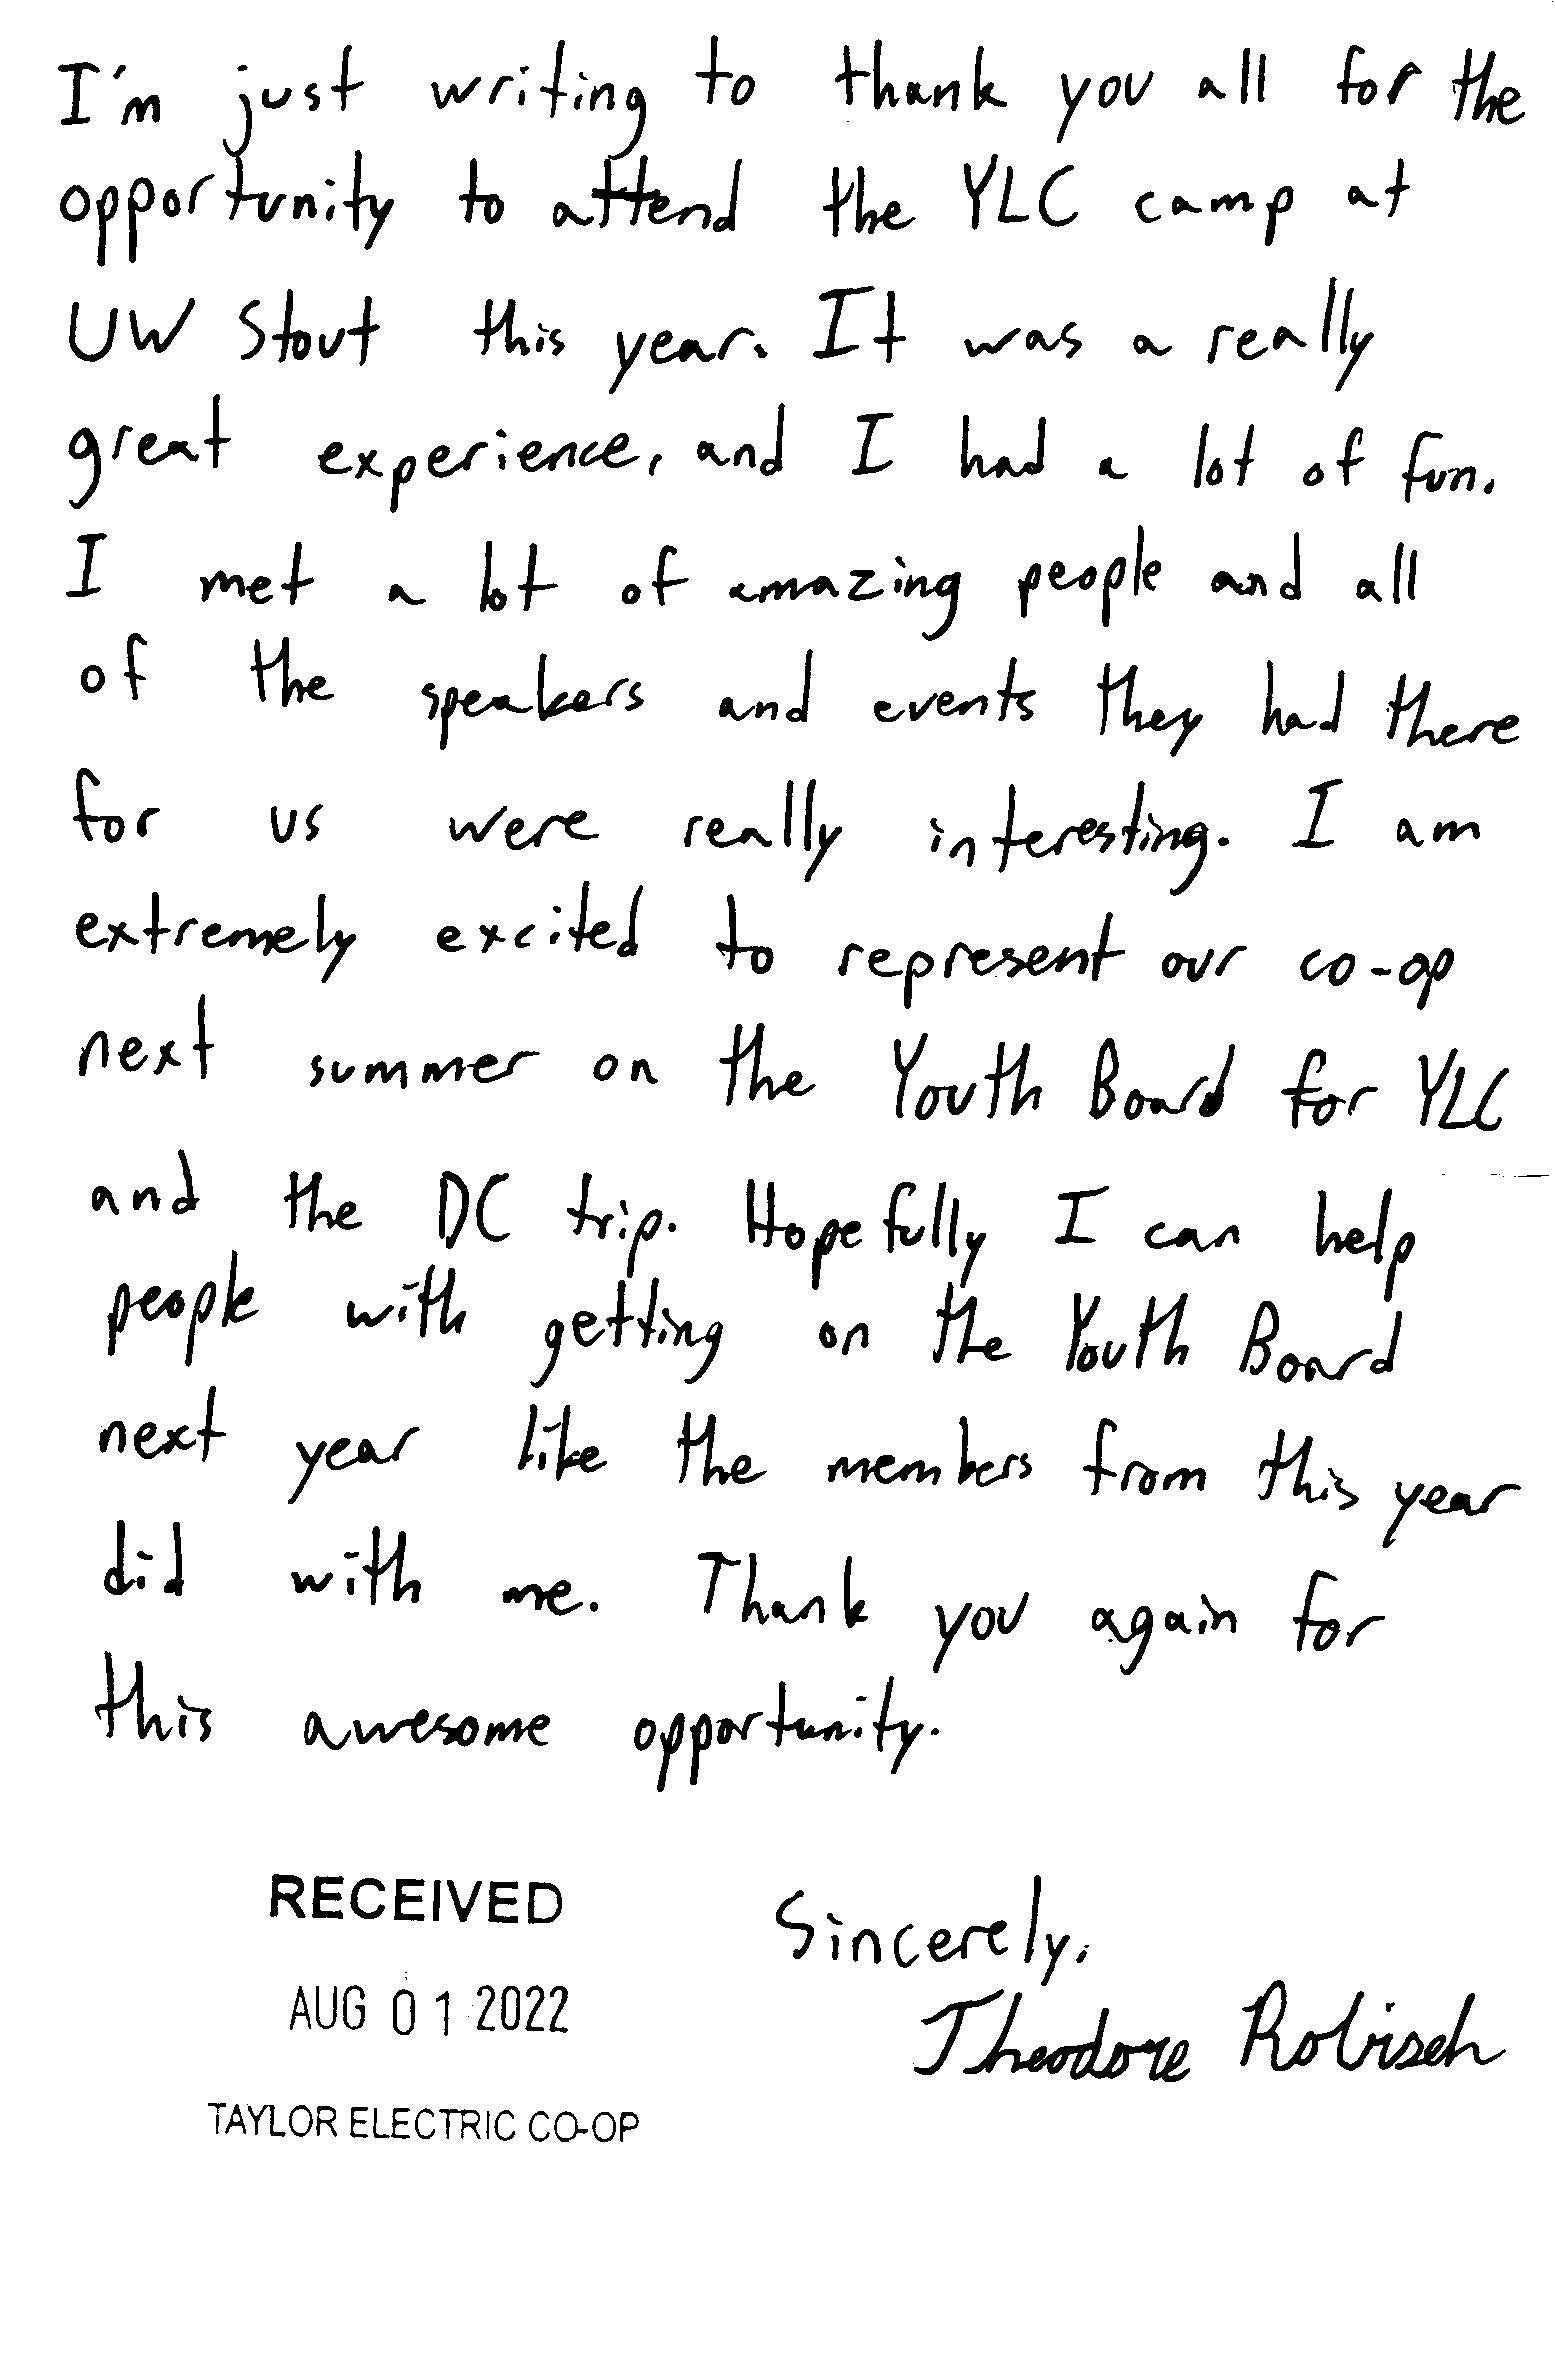 I'm just writing to thank you all for the
opportunity to attend the YLC camp at
UW Stout this year. It was a really
great experience, and I had a lot of fun.
I met a lot of amazing people and all
of the speakers and events they had there
for us were really interesting. I am
extremely excited to represent our co-op
next summer on the Youth Board for YLC
and the DC trip. Hopefully I can help
people with getting on the Youth Board
next year like the members from this year
did with me. Thank you again for
this awesome opportunity.
RECEIVED
AUG 01 2022
TAYLOR ELECTRIC CO-OP
Sincerely,
Theodore Robisch